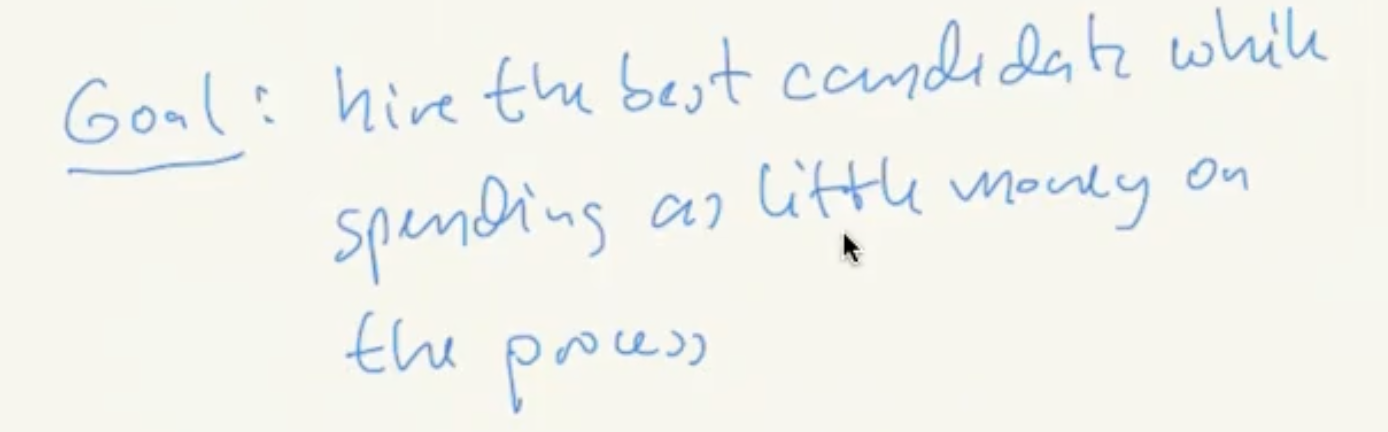 Goal: hire the best candidate while
spending as little money on
the process